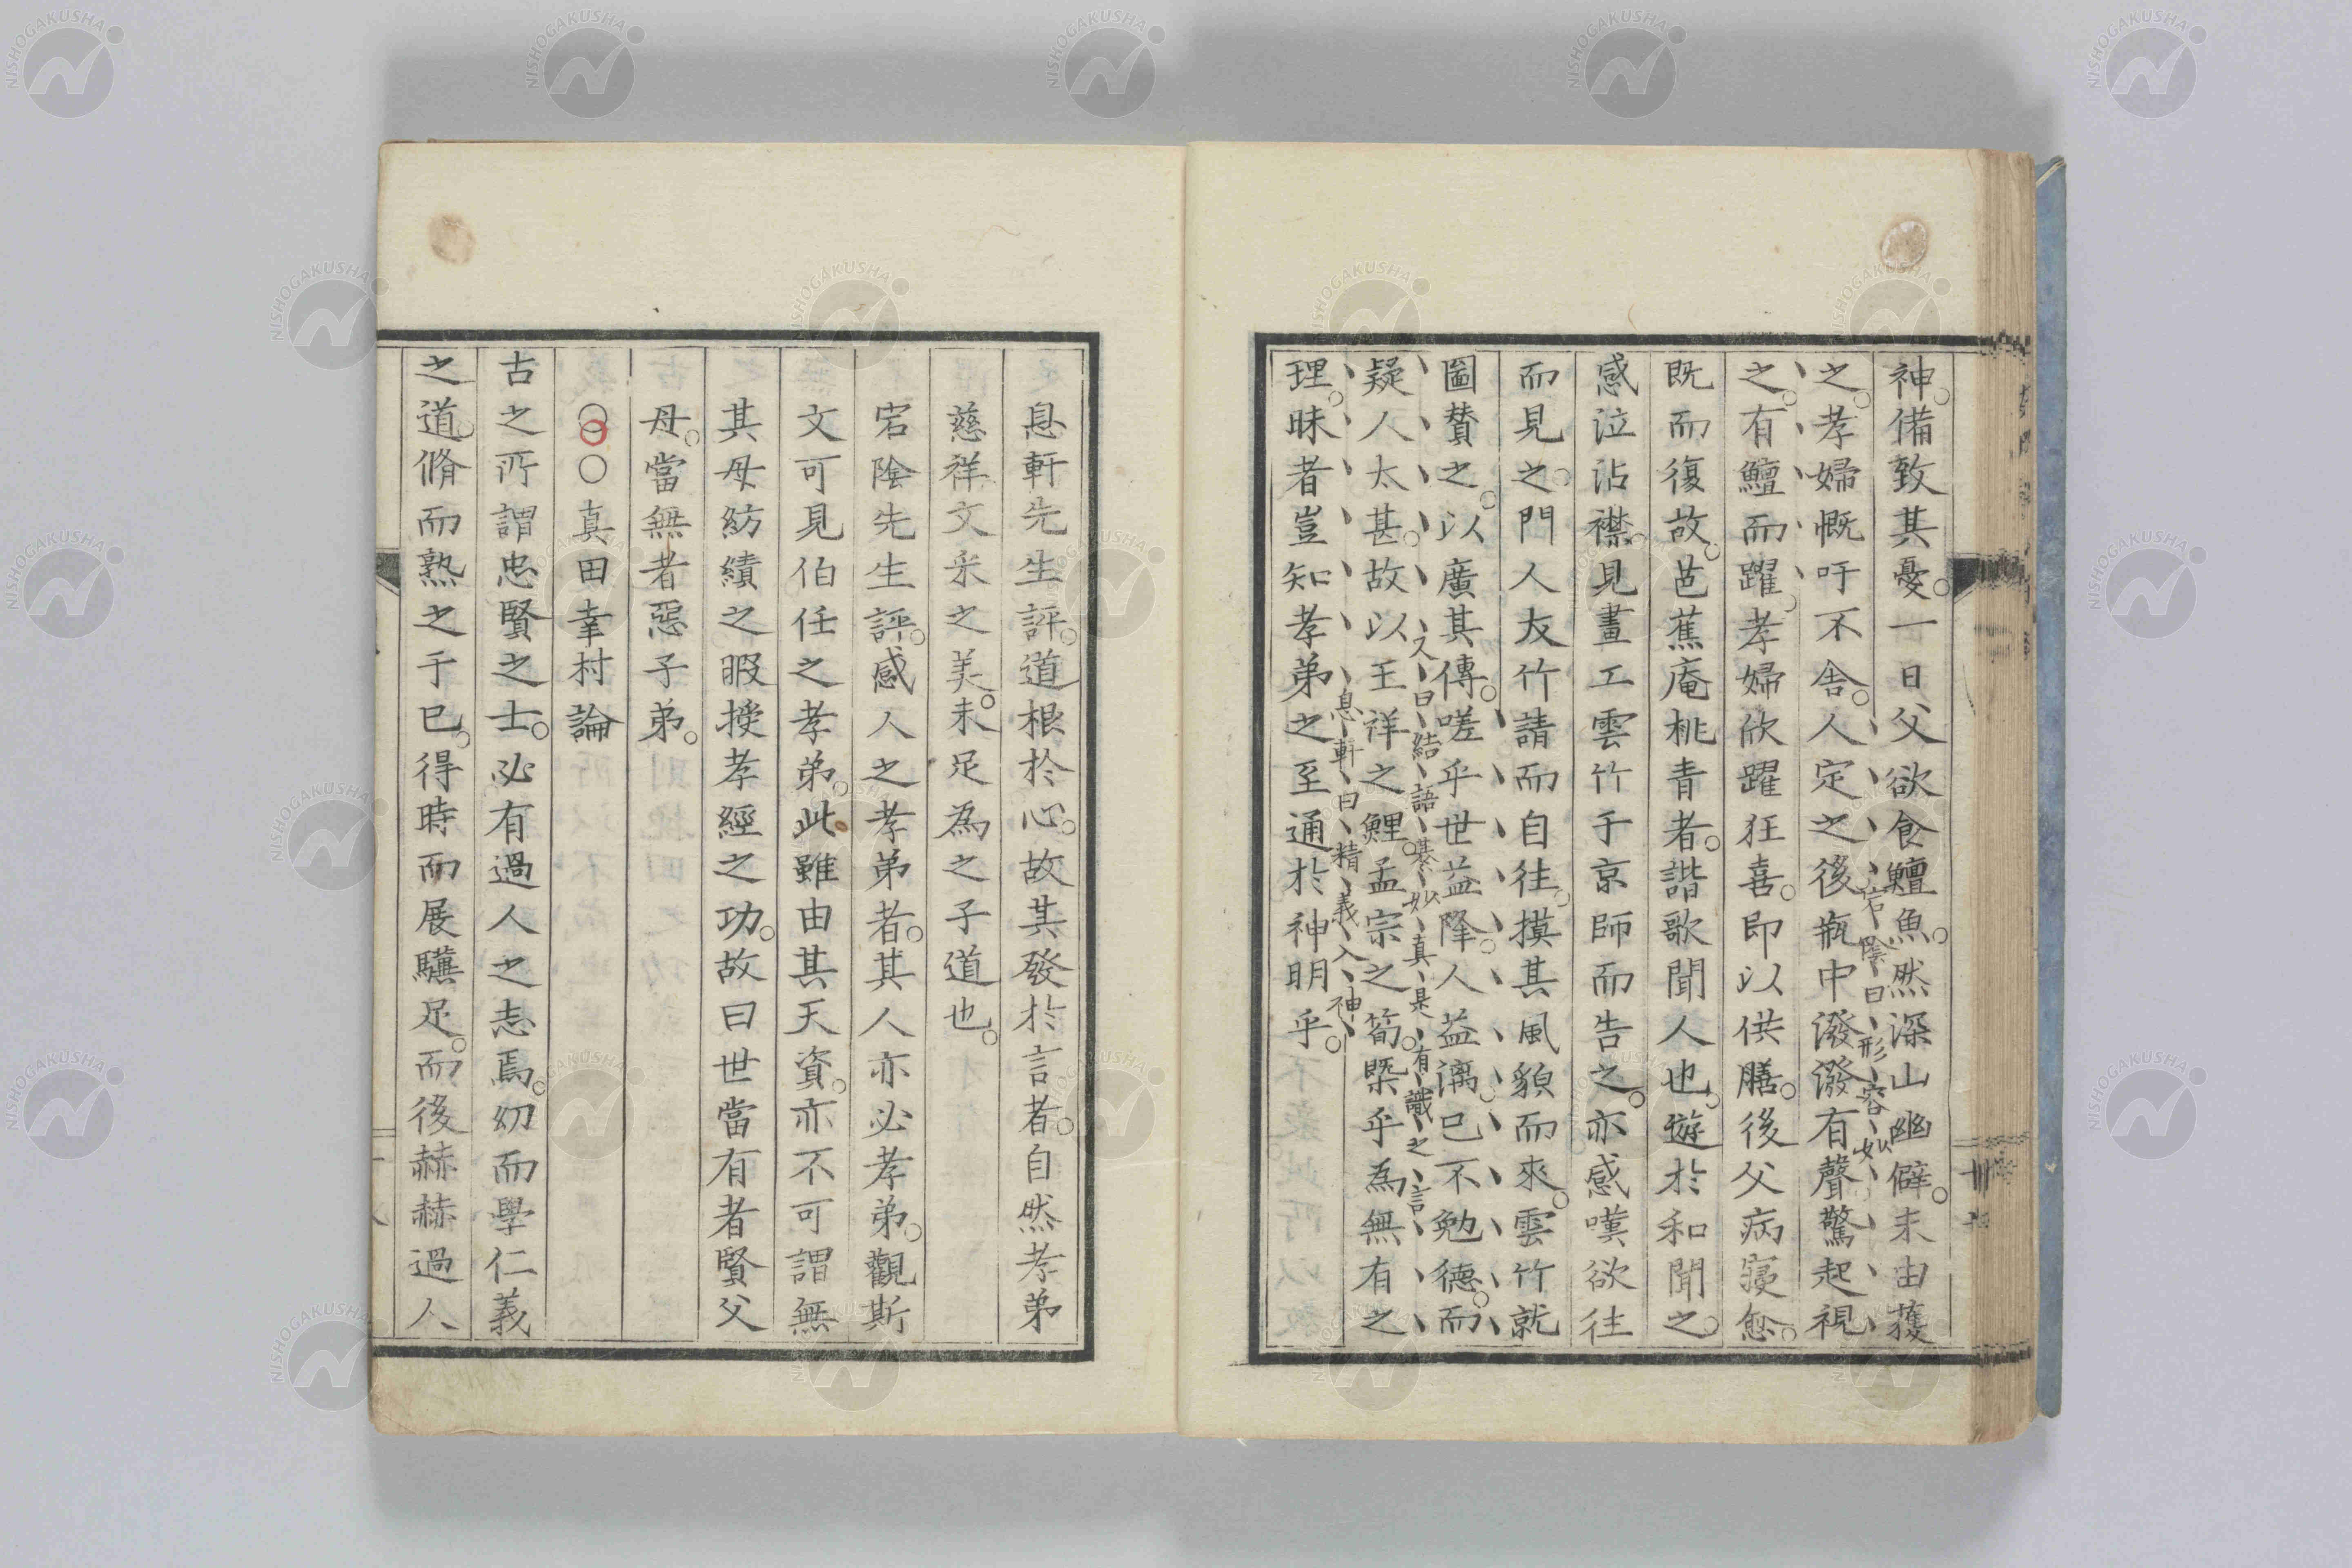 神。備致其憂。一日父欲食鱣魚。然深山幽僻。未由獲
之。孝婦慨吁不舎。人定之後瓶中潑潑有聲驚起視
宕陰曰形容妙
之。有鱣而躍。孝婦欣躍狂喜。即以供膳。後父病寖愈。
既而復故。芭蕉庵桃青者。諧歌聞人也。遊於和聞之。
感泣沾襟。見畫工雲竹于京師而告之。亦感嘆欲往
而見之。門人友竹請而自往。摸其風貌而來。雲竹就
圖賛之。以廣其傳。嗟乎世益降。人益漓。已不勉德。而
又曰結語。妙真是有識之言
疑人太甚。故以王祥之鯉。孟宗之筍。槩乎為無有之
息軒曰精義入神
理。昧者豈知孝弟之至通於神明乎。
息軒先生評。道根於心。故其發於言者。自然孝弟
慈祥文采之美。未足為之子道也。
宕陰先生評。感人之孝弟者。其人亦必孝弟。觀斯
文可見伯任之孝弟。此雖由其天資。亦不可謂無
其母紡績之暇授孝經之功。故曰世當有者賢父
母。當無者惡子弟。
○○真田幸村論
古之所謂忠賢之士。必有過人之志焉。幼而學仁義
之道。脩而熟之于已。得時而展驥足。而後赫赫過人